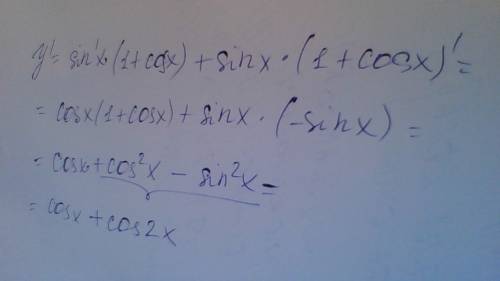 y' = sin'x(1+cosx) + sinx · (1+cosx)' =
= cosx(1+cosx) + sinx · (-sinx) =
= cosx + cos²x - sin²x =
= cosx + cos2x